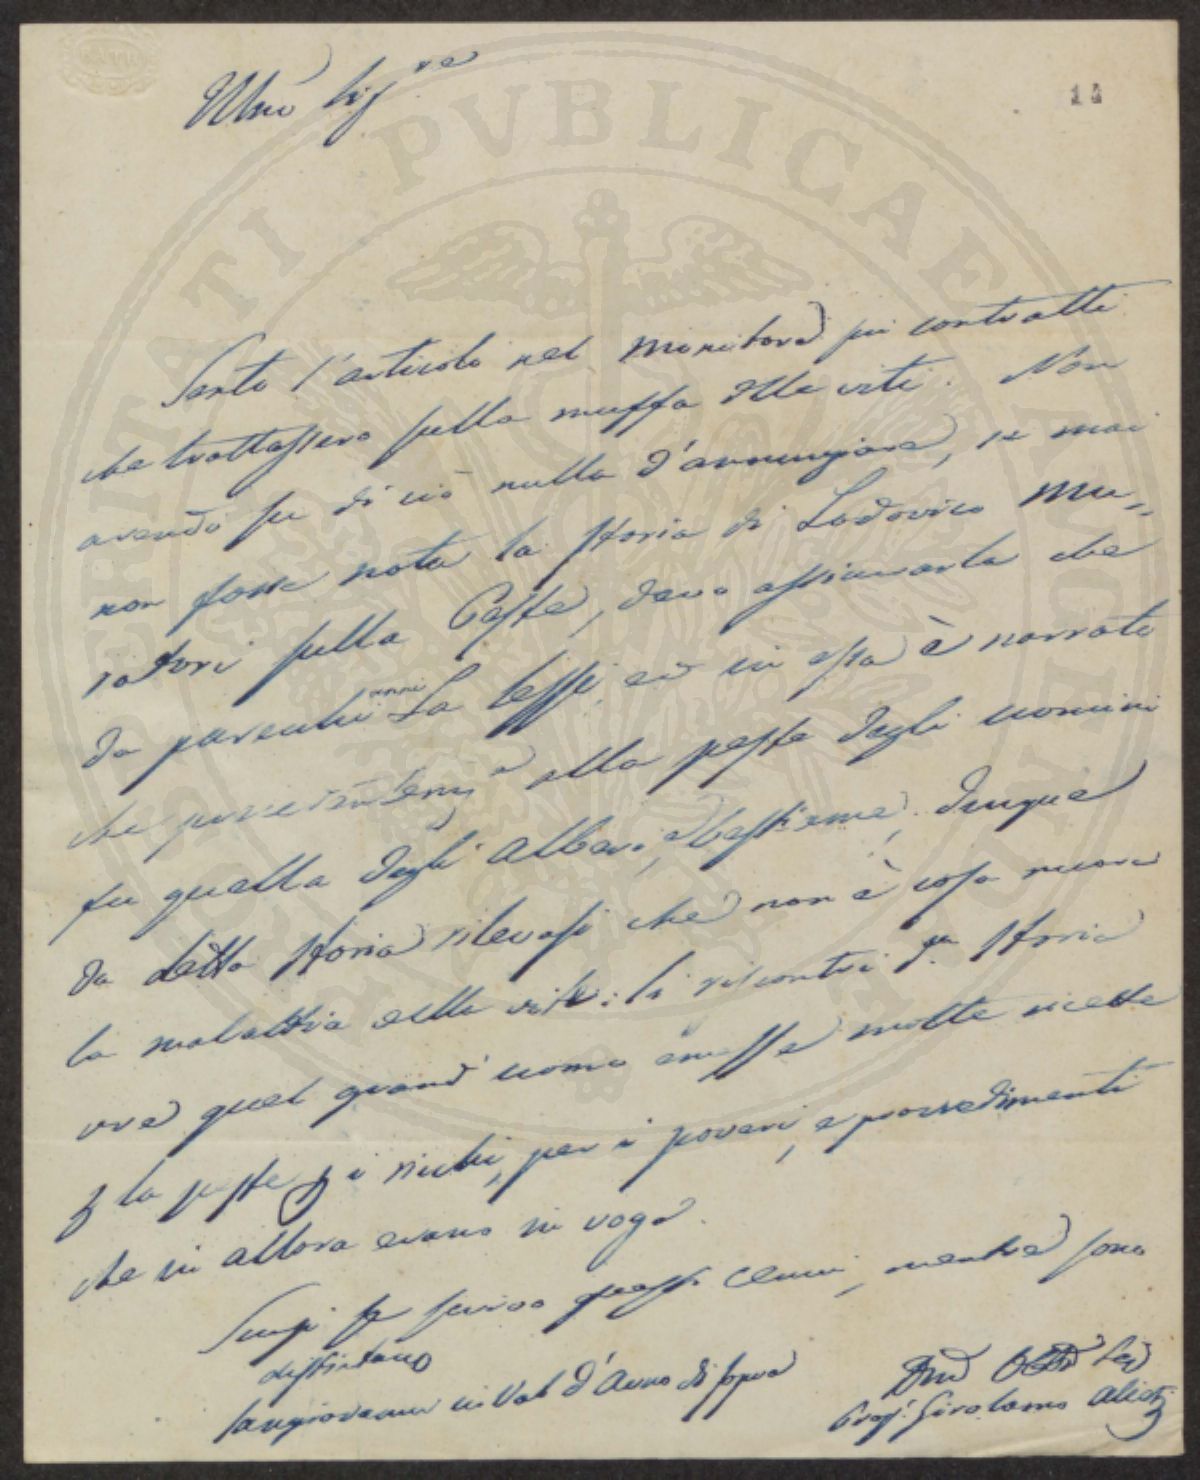 Illmo Sigre
14
Sento l'articolo nel Monitore pei contratti
che trattassero sulla muffa delle viti. Non
avendo su di ciò nulla d'annunziare, se mai
non fosse nota la storia di Lodovico Mu=
ratori sulla Peste, devo assicurarla che
da parecchi anni La lessi, ed in essa è narrato
che alla peste degli uomini
fu quella degli alberi, e bestiame, dunque
da detta storia rilevasi che non è cosa nuova
la malattia delle viti: li riscontri da. storia
ove quel grand'uomo emesse molte ricette
p la peste p i ricchi, per i poveri, e provvedimenti
che in allora erano in voga.
Scusi se scrivo questi cenni, mentre sono
distintamo
Sangiovanni in Val d'Arno di sopra
Dmo Servo
Girolamo
PVBLICAE